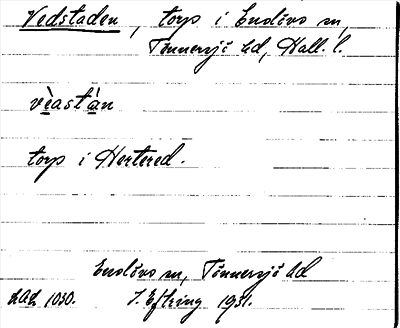 Vedstaden, torp i Enslövs sn,
Tönnersjö hd, Hall. l.
vèastàn
torp i Hertered.
Enslövs sn, Tönnersjö hd
LAL 1030. J. Eftring 1931.